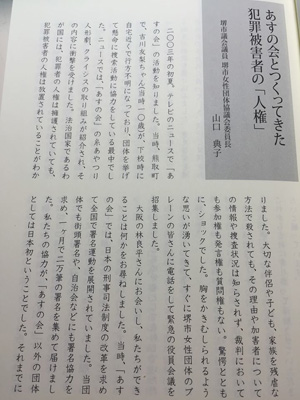 あすの会とつくってきた
犯罪被害者の「人権」
堺市議会議員 堺市女性団体協議会委員長
山口 典子
二〇〇三年の初夏、テレビのニュースで「あ
すの会」の活動を知りました。当時、熊取町
で、吉川友梨ちゃん(当時一〇歳)が、下校時に
自宅近くで行方不明になっており、団体を挙げ
て懸命に捜索活動に協力をしている最中でし
た。ニュースでは、「あすの会」の糸あやつり
人形劇、クライシスの取り組みが紹介され、そ
の内容に衝撃を受けました。法治国家であるわ
が国には、犯罪者の人権は擁護されていても、
犯罪被害者の人権は放置されていることがわか
りました。大切な伴侶や子ども、家族を残虐な
方法で殺されても、その理由や加害者について
の情報や捜査状況は知らされず、裁判において
も参加権も発言権も質問権もない。驚愕ととも
に、ショックでした。胸をかきむしられるよう
な思いが湧いてきて、すぐに堺市女性団体のブ
レーンの皆さんに電話をして緊急の役員会議を
招集しました。
大阪の林良平さんにお会いし、私たちができ
ることは何かをお尋ねしました。当時、「あす
の会」では、日本の刑事司法制度の改革を求め
て全国で署名運動を展開されていました。当団
体でも街頭署名や、自治会などにも署名協力を
求め、一ヶ月で二万筆の署名を集めて届けまし
た。私たちの協力が、「あすの会」以外の団体
としては日本初ということでした。それまでに